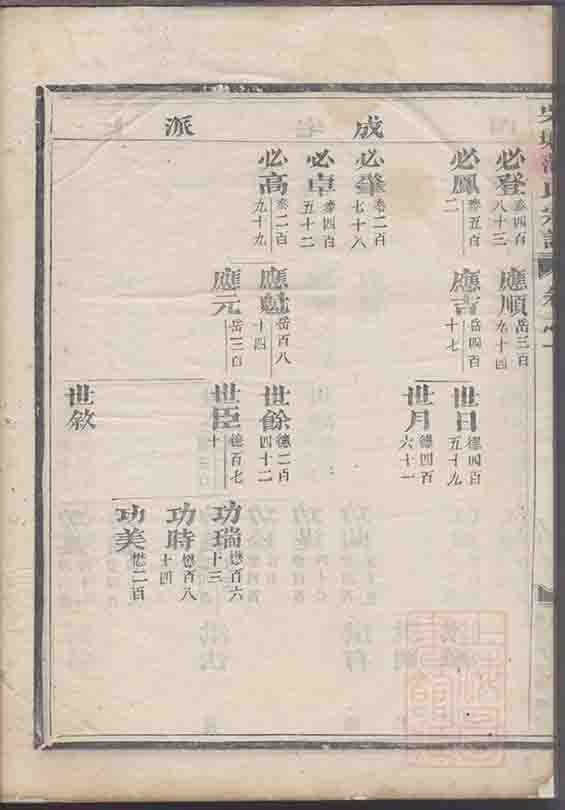 成派
必登 叅四百八十三
必鳳 叅五百二
必肇 叅二百七十八
必卓 叅四百五十二
必高 叅二百九十九
應順 岳三百九十四
應吉 岳四百十七
應魁 岳百八十四
應元 岳三百
世日 德四百五十九
世月 德四百六十一
世餘 德二百四十二
世臣 德百七十
世敘
功瑞 懋百六十三
功時 懋百八十四
功美 懋二百